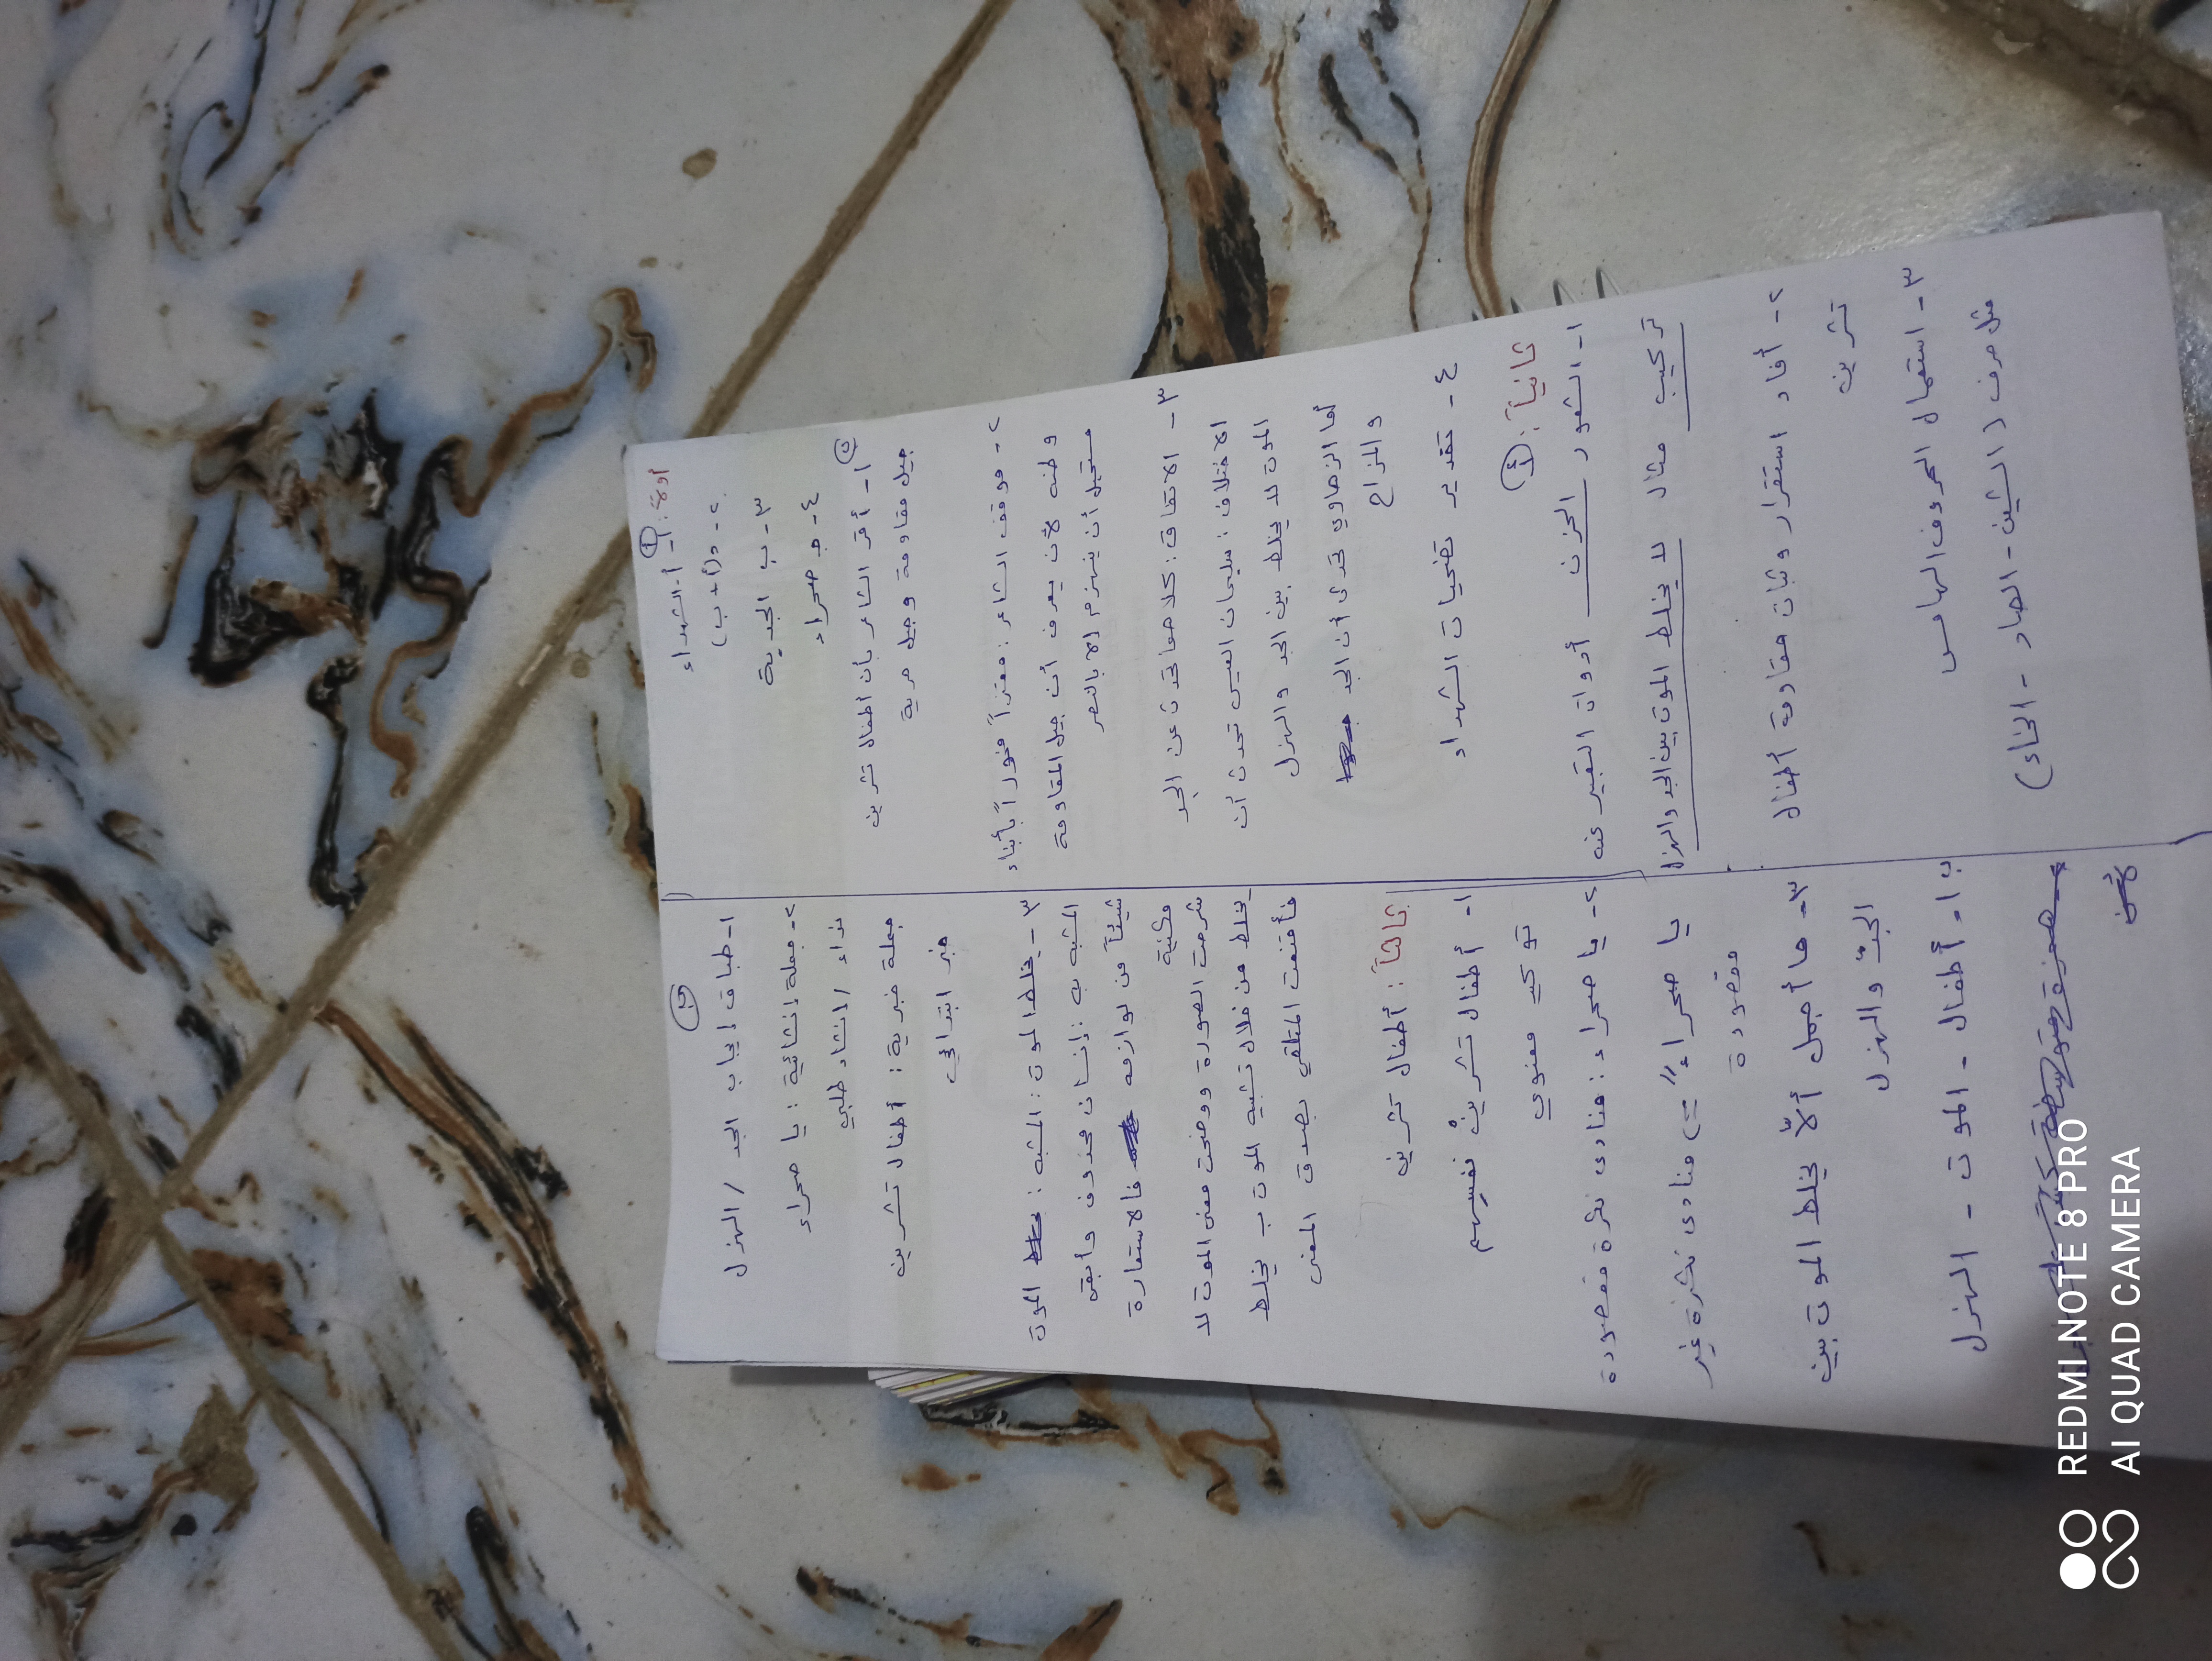 أولاً: أ
١- أ- الشهداء
٢- د (أ + ب)
٣- ب الجدية
٤- ج صحراء
ب
١- أقر الشاعر بأن أطفال تشرين
جيل مقاومة وجيل حرية
٢- موقف الشاعر: معتزاً فخوراً بأبناء
وطنه لأن يعرف أن جيل المقاومة
مستحيل أن ينهزم إلا بالنصر
٣- الاتفاق: كلاهما تحدث عن الجد
الاختلاف: سليمان العيسى تحدث أن
الموت لا يخلط بين الجد والهزل
أما الزهاوي تحدى أن الجد
والمزاح
٤- تقدير تضحيات الشهداء
ثانياً: أ
١- الشعور الحزن أدوات التعبير عنه
تركيب مثال لا يخلط الموت بين الجد والهزل
٢- أفاد استقرار وثبات مقاومة أطفال
تشرين
٣- استعمال الحروف الهامس
مثل حرف (الشين - الصاد - الخاء)
ب
١- طباق إيجاب الجد / الهزل
٢- جملة إنشائية: يا صحراء
نداء / إنشاء طلبي
جملة خبرية: أطفال تشرين
خبر ابتدائي
٣- يخلط الموت: المشبه: الموت
المشبه به: إنسان محذوف وأبقى
شيئاً من لوازمه فالاستعارة
مكنية
شرحت الصورة ووضحت معنى الموت لا
يخلط من خلال تشبيه الموت ب يخلط
فأقنعت المتلقي بصدق المعنى
ثالثاً: أطفال تشرين
١- أطفال تشرين نفسهم
توكيد معنوي
٢- يا صحراء: منادى نكرة مقصودة
يا صحراءً => منادى نكرة غير
مقصودة
٣- ما أجمل ألّا يخلط الموت بين
الجدّ والهزل
أطفال - الموت - الهزل
REDMI NOTE 8 PRO
AI QUAD CAMERA